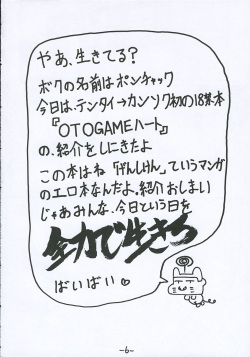 やあ、生きてる?
ボクの名前はポンチャック
今日は、テンタイ→カンソク初の18禁本
『OTOGAMEハート』
の、紹介をしにきたよ
この本はね「げんしけん」ていうマンガ
のエロ本なんだよ、紹介おしまい
じゃあみんな、今日という日を
全力で生きろ
ばいばい♡
-6-